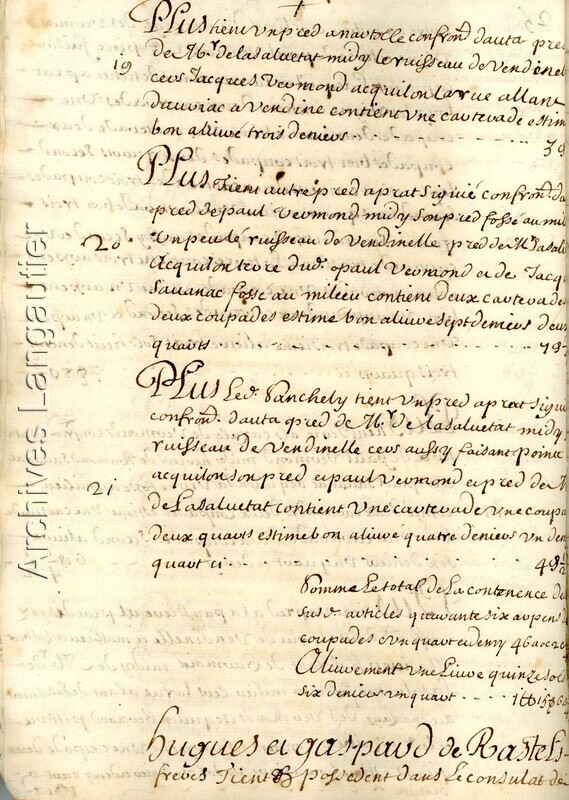 Plus tient un pred a nautolle confron.^t d'auta pred
de M.^r de lasaluetat midy le ruisseau de Vendinel
19
cers Jacques Vermond acquilon la rue allant
dauriac a Vendine contient une carterade estim
bon aliure trois deniers
3 d
Plus Tient autre pred a prat siguié confron.^t da
pred de paul Vermond midy son pred fossé au mil
20
un peu lé ruisseau de Vendinelle pred de M.^r lasal
Acquilon terre dud. paul Vermond et de Jacq
Sauanac fosse au milieu contient deux carterades
deux coupades estime bon aliure sept deniers deux
quarts
7 d
Plus Led. Panchely tient un pred a prat siguie
confron.^t dauta pred de M.^r de lasaluetat midy
ruisseau de Vendinelle cers aussy faisant pointe
21
acquilon son pred et paul Vermond et pred de M
de Lasaluetat contient une carterade une coupa
deux quarts estime bon aliure quatre deniers un demy
quart ci
4 d ½
Somme Le total de La contenence de
susd. articles quarante six arpens
coupades e un quart et demy 46 a 2 c
Aliurement une Liure quinze sols
six deniers un quart
1 ₶ 15 s 6 d
hugues et gaspard de Rastels
freres Tient & possedent dans Le consulat de
Archives Langautier